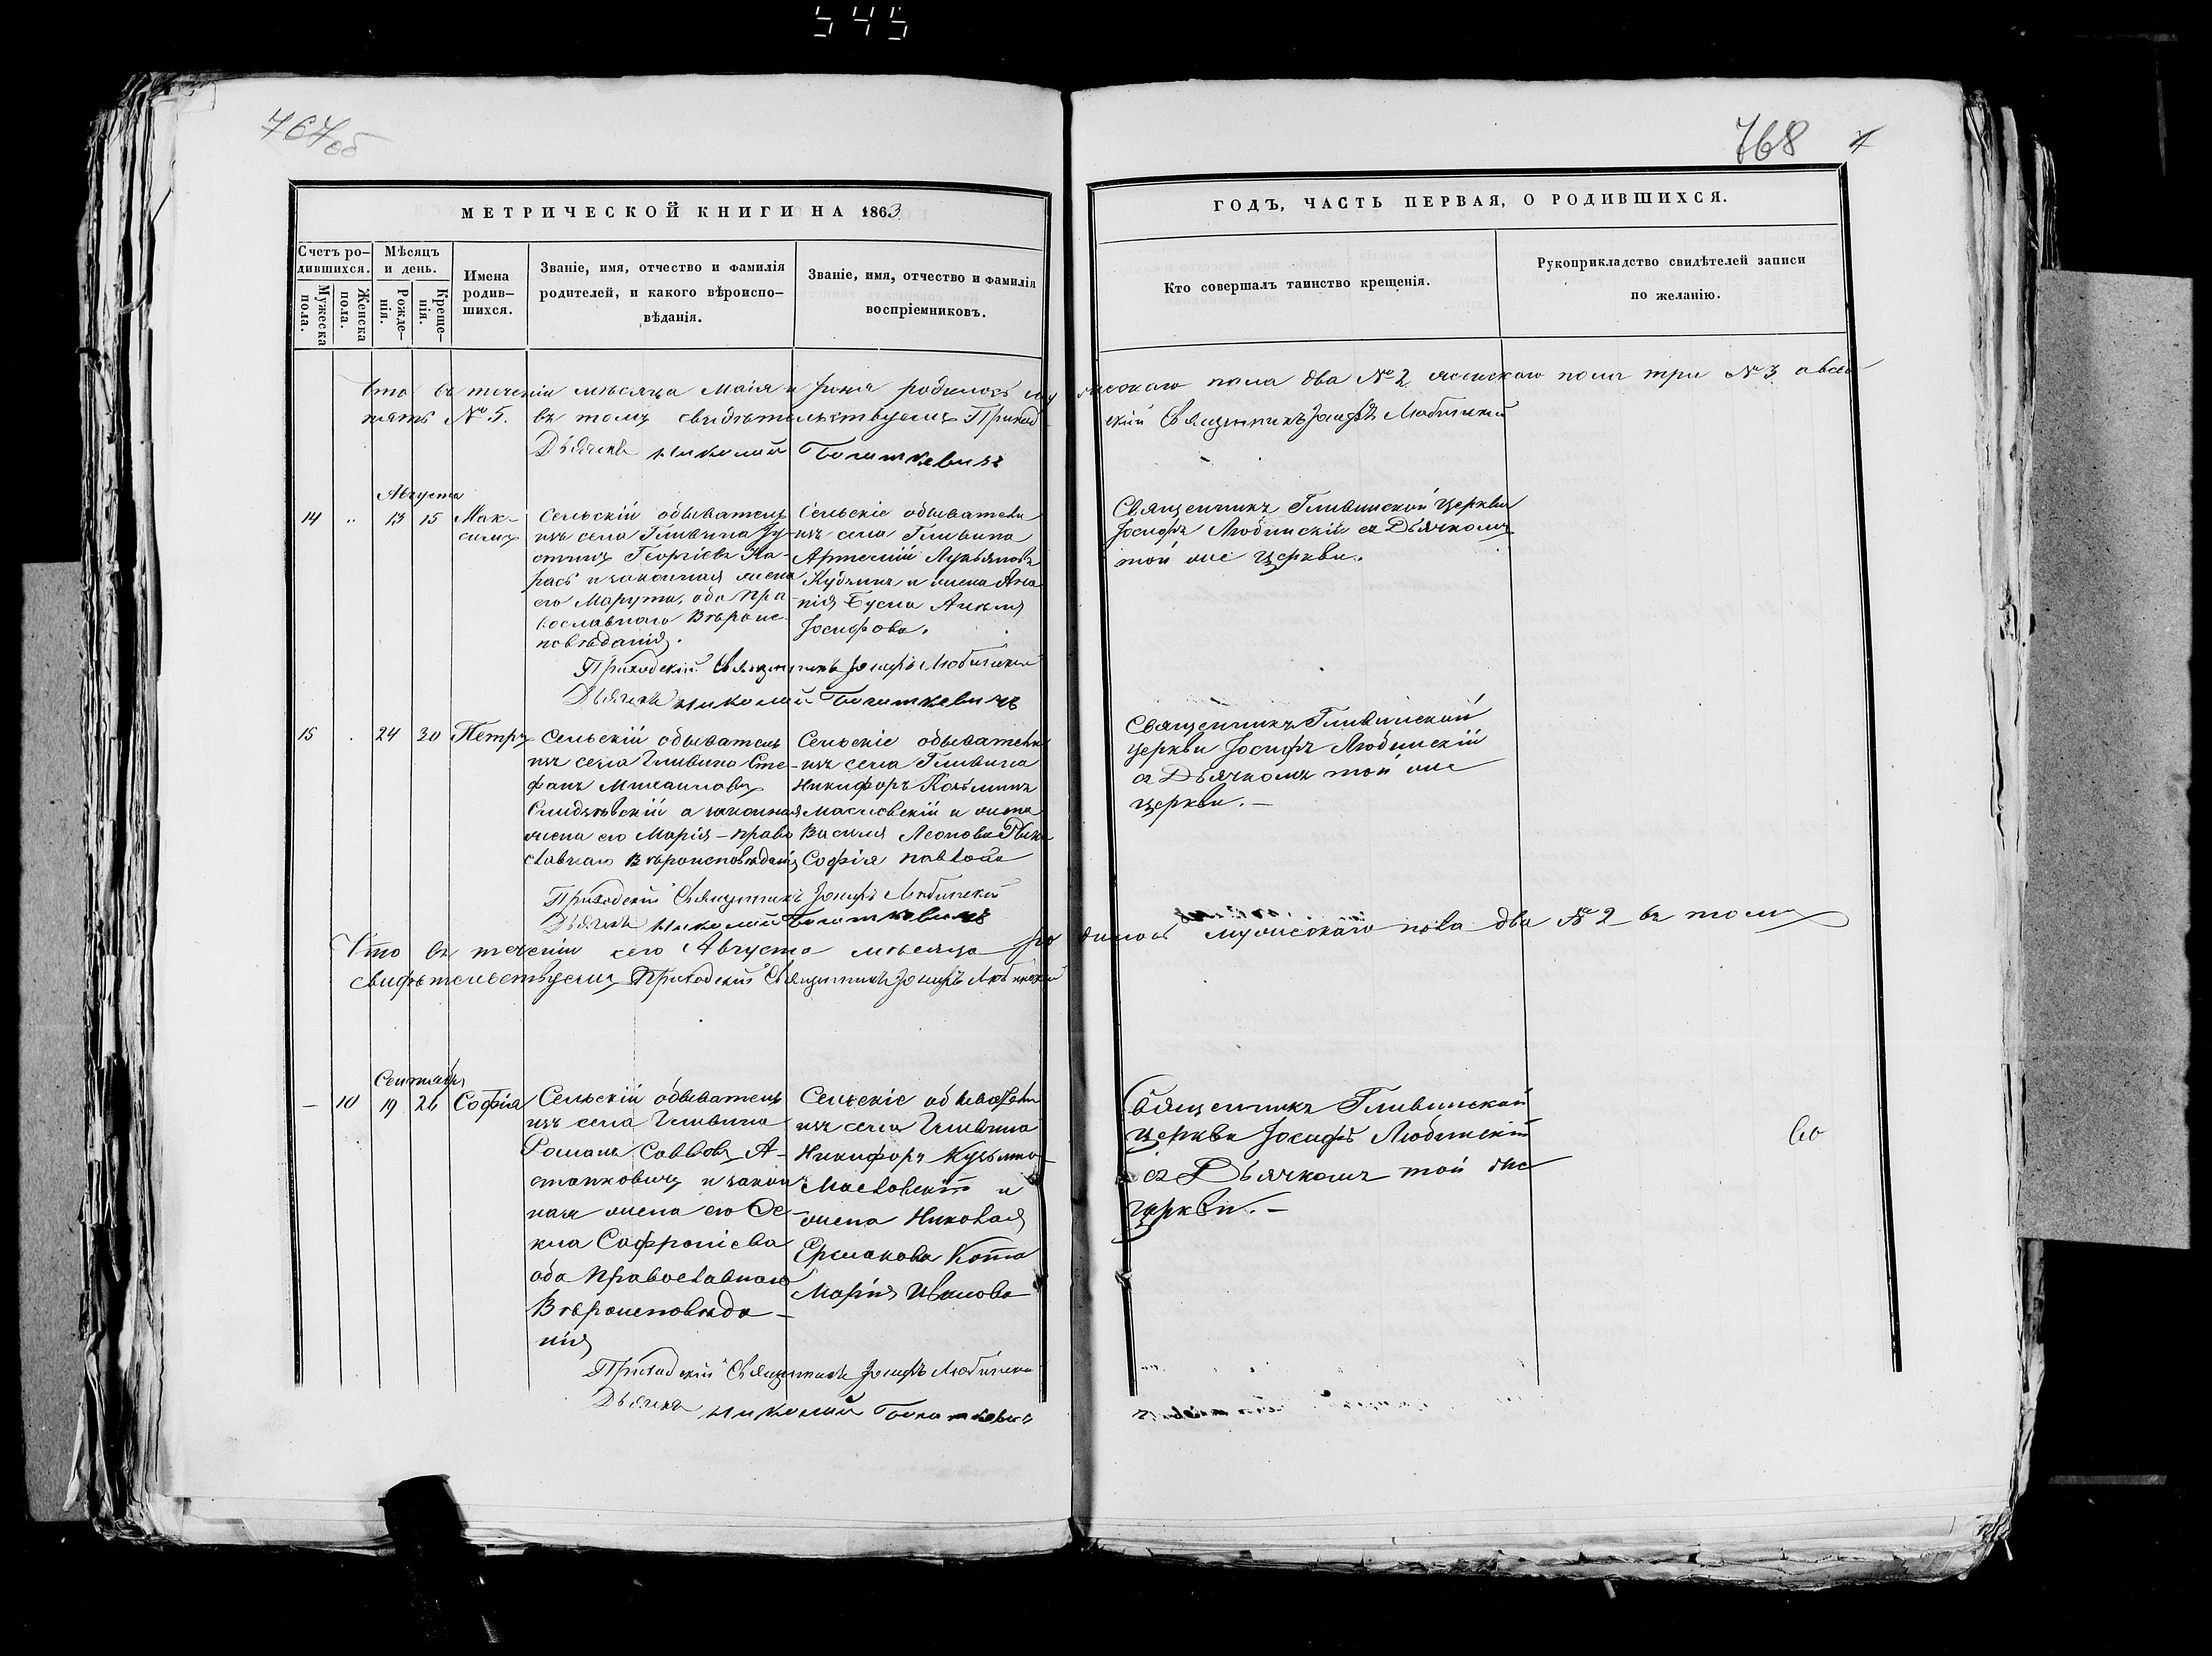 545
767 об
768
МЕТРИЧЕСКОЙ КНИГИ НА 1863
ГОДЪ, ЧАСТЬ ПЕРВАЯ, О РОДИВШИХСЯ.
Счетъ ро-
дившихся.
Мужеска
пола.
Женска
пола.
Мѣсяцъ
и день.
Рожде-
нія.
Креще-
нія.
Имена
родив-
шихся.
Званіе, имя, отчество и фамилія
родителей, и какого вѣроиспо-
вѣданія.
Званіе, имя, отчество и фамилія
воспріемниковъ.
Кто совершалъ таинство крещенія.
Рукоприкладство свидѣтелей записи
по желанію.
Что въ теченіи мѣсяца Маія и Іюня родилось мужескаго пола два №2 женскаго пола три №3 а всѣхъ
пять №5. въ томъ свидѣтельствуемъ Приходскій Священникъ Іосифъ Любинскій
Дьячекъ Николай
Августа
14 " 13 15
Мак-
симъ
Сельскій обыватель
изъ села Гливина Іу-
стинъ Георгіевъ Ка-
рась и законная жена
его Марута, оба пра-
вославнаго Вѣроис-
повѣданія.
Сельскіе обыватели
изъ села Гливина
Артемій Лукьяновъ
и жена Ана
нія
Іосифова.
Священникъ Гливинской Церкви
Іосифъ Любинскій съ Дьячкомъ
той же Церкви.
Приходскій Священникъ Іосифъ Любинскій
Дьячекъ Николай
15 . 24 30 Петръ
Сельскій обыватель
изъ села Гливина Сте-
фанъ Михаиловъ
а законная
жена его Марія - право
славнаго Вѣроисповѣданія
Сельскіе обыватели
изъ села Гливина
Никифоръ Козьминъ
Масловскій и жена
Василія Леонова
Софія Павлова
Священникъ Гливинской
церкви Іосифъ Любинскій
съ Дьячкомъ той же
церкви. —
Приходскій Священникъ Іосифъ Любинскій
Дьячекъ Николай
Что въ теченіи сего Августа мѣсяца родилось мужескаго пола два №2 въ томъ
свидѣтельствуемъ Приходскій Священникъ Іосифъ Любинскій
Сентября
— 10 19 26 Софія
Сельскій обыватель
изъ села Гливина
Романъ Саввовъ А-
станковичъ и закон
ная жена его Ѳе-
кла Софроніева
оба православнаго
Вѣроисповѣда-
нія
Сельскіе обыватели
изъ села Гливина
Никифоръ Кузьмино
Масловскій и
жена Николая
Ермакова Кота
Марія Иванова
Священникъ Гливинской
церкви Іосифъ Любинскій
съ Дьячкомъ той же
церкви. —
Приходскій Священникъ Іосифъ Любинскій
Дьячекъ Николай